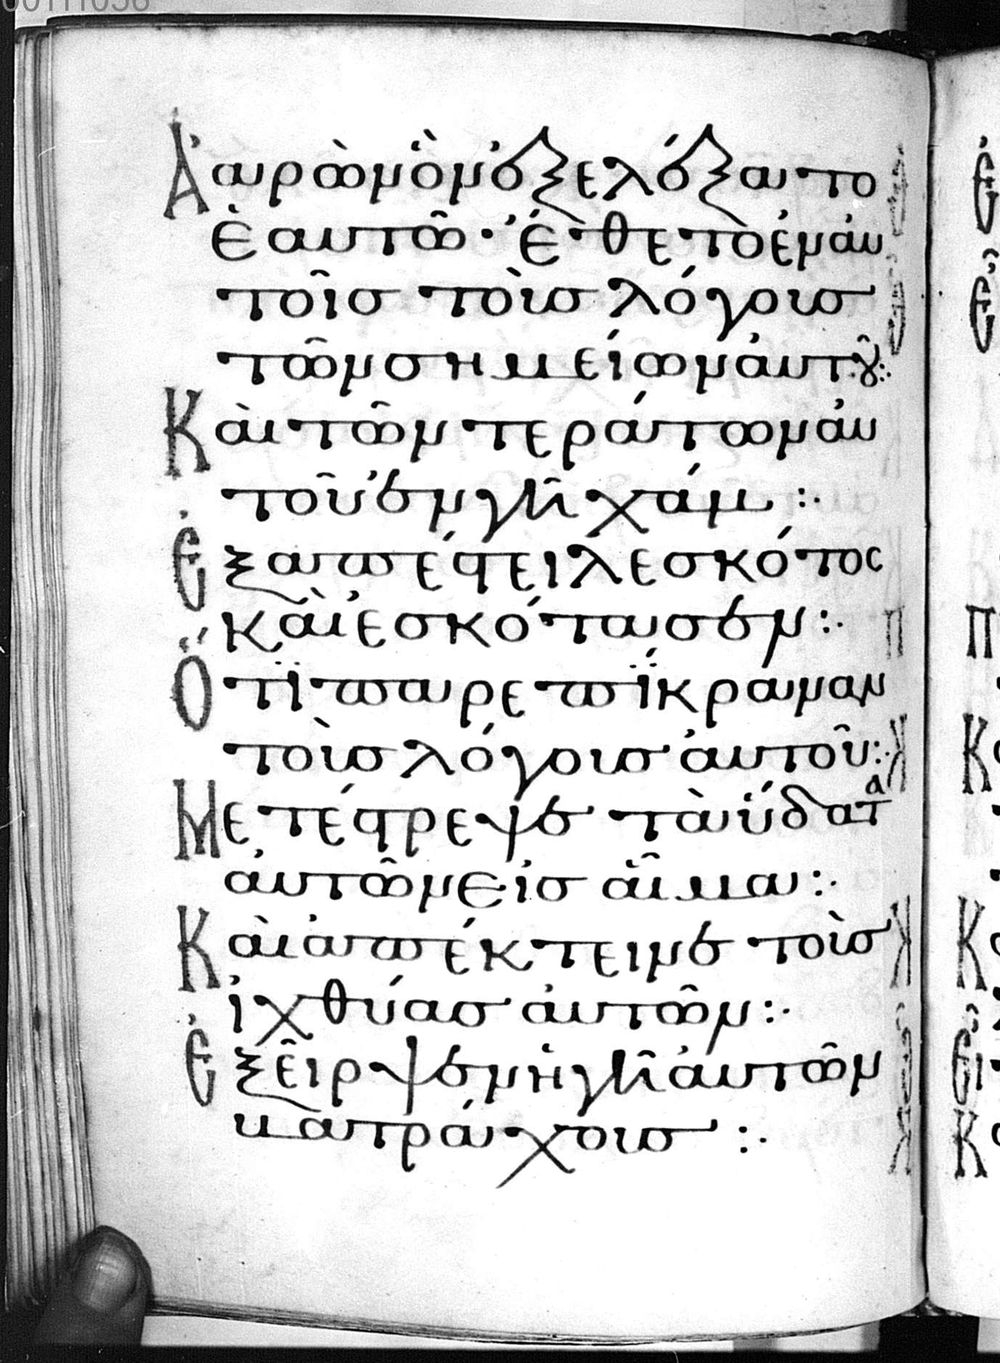 Ἀαρὼν ὃν ἐξελέξατο
ἑαυτῶ· ἔθετο ἐν αυ
τοῖς τοὺς λόγους
τῶν σημείων ἀυτοῦ:
Καὶ τῶν τεράτων ἀυ
τοῦ ἐν γῆ χάμ :·
Ἐξαπέστειλε σκότος
καὶ ἐσκότασεν :·
Ὅτι παρεπίκραναν
τοὺς λόγους ἀυτοῦ:·
Μετέστρεψε τὰ ὕδατα
ἀυτῶν εἰς αἷμα :·
Καὶ ἀπέκτεινε τοὺς
ἰχθύας ἀυτῶν :·
Ἐξεῖρψεν ἡ γῆ ἀυτῶν
βατράχους :·